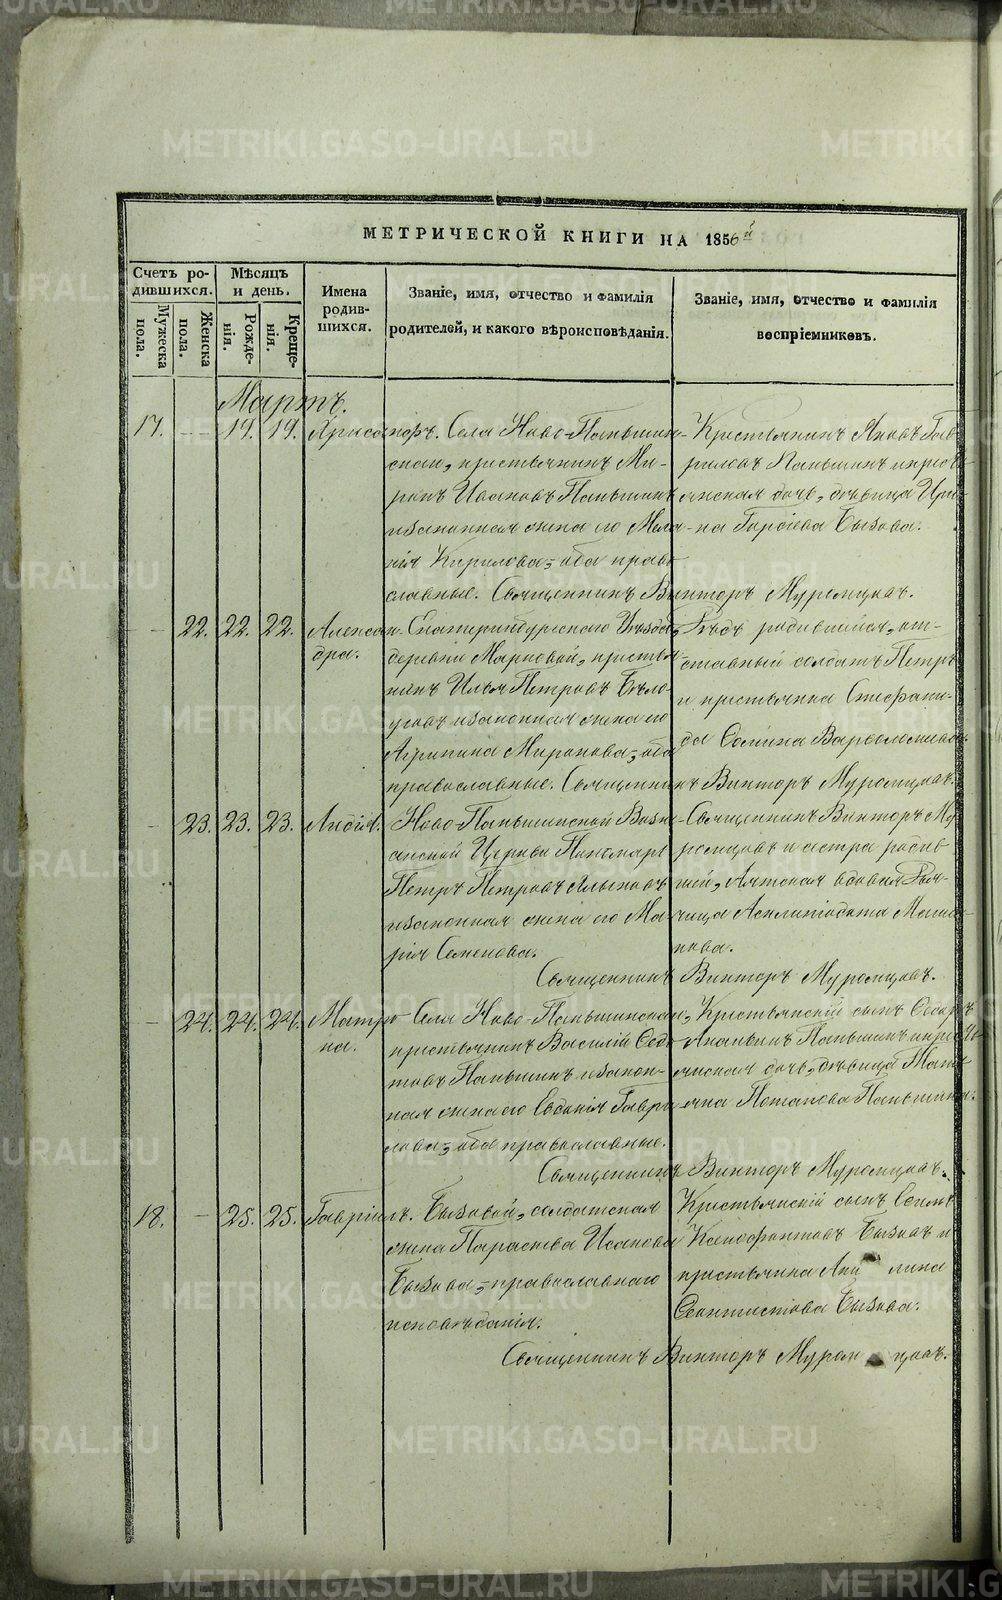 METRIKI.GASO-URAL.RU
МЕТРИЧЕСКОЙ КНИГИ НА 1856й
Счетъ ро-
дившихся.
Мужеска
пола.
Женска
пола.
Мѣсяцъ
и день.
Рожде-
нія.
Креще-
нія.
Имена
родив-
шихся.
Званіе, имя, отчество и фамилія
родителей, и какого вѣроисповѣданія.
Званіе, имя, отчество и фамилія
воспріемниковъ.
Мартъ.
17. — 19. 19. Хрисанфъ. Села Ново-Паньшин-
скаго, крестьянинъ Ми-
ронъ Ивановъ Паньшинъ
и законная жена его Мела-
нія Кирилова, оба право
славные.
Крестьянинъ Яковъ Гав-
риловъ Паньшинъ и кресть-
янская дочь, дѣвица Ири-
на Бызова.
Священникъ Викторъ Муромцовъ.
— 22. 22. 22. Алексан-
дра.
Екатеринбургскаго Уѣзда,
деревни Марковой, крестья-
нинъ Илья Петровъ Бѣло-
усовъ и законная жена его
Агрипина Миронова, оба
православные.
Дѣдъ родившейся, от-
ставный солдатъ Петръ
и крестьянка Стефани-
да Варѳоломеева
Священникъ Викторъ Муромцовъ.
— 23. 23. 23. Лидія.
Ново-Паньшинской Возне-
сенской Церкви Пономарь
Петръ Петровъ
и законная жена его Ма-
рія Семенова.
Священникъ Викторъ Му-
ромцовъ и сестра родив
шей, вдовая
Асклипіодота
Священникъ Викторъ Муромцовъ.
— 24. 24. 24. Матро-
на.
Села Ново-Паньшинскаго,
крестьянинъ Василій
Паньшинъ и закон-
ная жена его Евдокія Гаври-
лова, оба православные.
Крестьянскій сынъ
Ананьинъ Паньшинъ и кресть-
янская дочь, дѣвица
Потапова Паньшина.
Священникъ Викторъ Муромцовъ.
18. — 25. 25. Гавріилъ.
Бызовой, солдатская
жена Параскева Исакова
Бызова, православнаго
исповѣданія.
Крестьянскій сынъ
Ксенофонтовъ Бызовъ и
крестьянка
Бызова.
Священникъ Викторъ Муромцовъ.